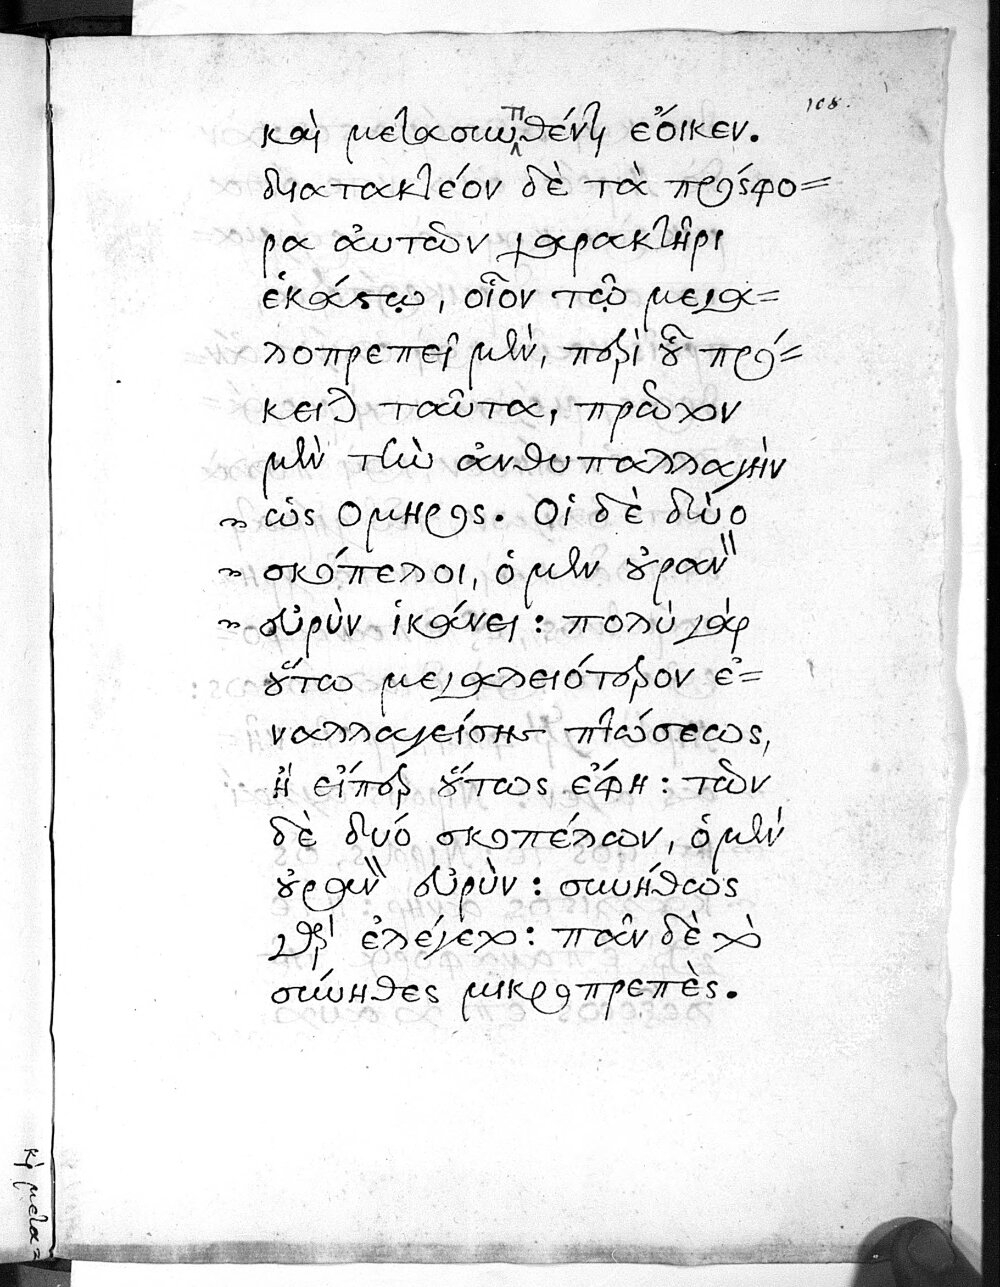 108.
καὶ μετασυντιθέντι ἔοικεν.
διατακτέον δὲ τὰ πρόσφο=
ρα αὐτῶν χαρακτῆρι
ἑκάστῳ, οἷον τῷ μεγα=
λοπρεπεῖ μὲν, περὶ οὗ πρό=
κειται ταῦτα, πρῶτον
μὲν τὴν ἀνθυπαλλαγὴν
ὡς Ομηρος. Οἱ δὲ δύο
σκόπελοι, ὁ μὲν οὐραν"
εὐρὺν ἱκάνει: πολὺ γάρ
οὕτω μεγαλειότερον ἐ=
ναλλαγείσης πτώσεως,
ἢ εἴπερ οὕτως ἔφη: τῶν
δὲ δυό σκοπέλων, ὁ μὲν
οὐραν" εὐρὺν: συνήθως
γὰρ ἐλέγετο: πᾶν δὲ τὸ
σύνηθες μικροπρεπὲς.
κὶ μετα=